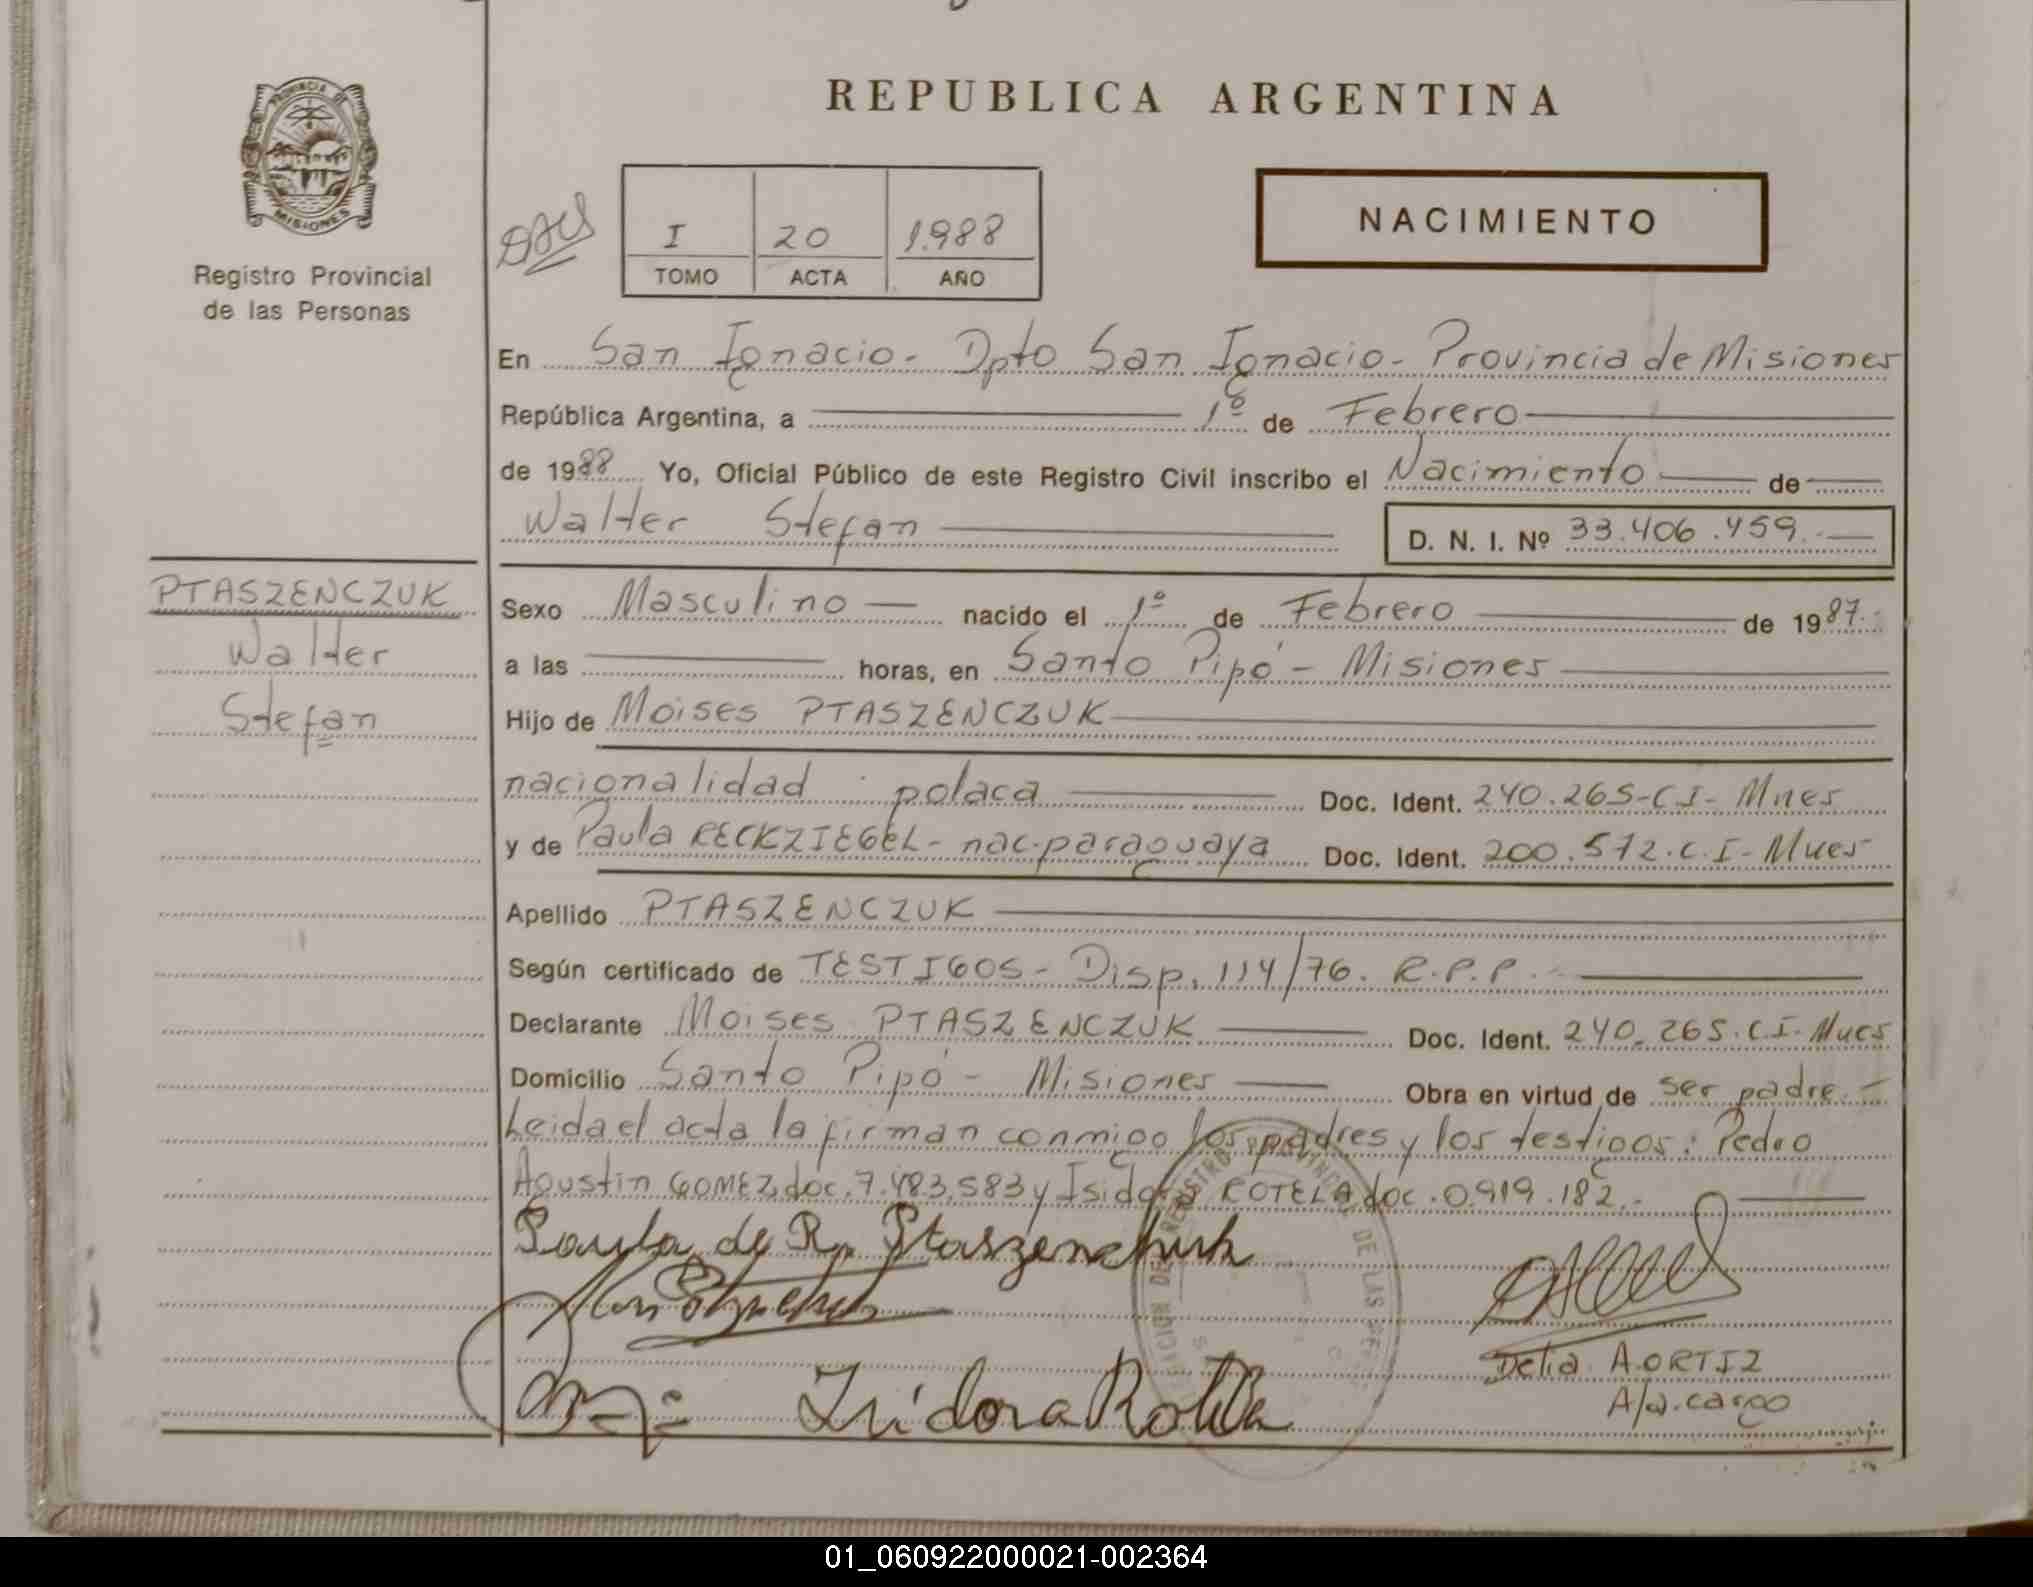 REPUBLICA ARGENTINA
PROVINCIA DE
MISIONES
Registro Provincial
de las Personas
I 20 1.988
TOMO ACTA AÑO
NACIMIENTO
En San Ignacio - Dpto San Ignacio - Provincia de Misiones
República Argentina, a 1º de Febrero
de 1988 Yo, Oficial Público de este Registro Civil inscribo el Nacimiento de
Walter Stefan D. N. I. Nº 33.406.459.
PTASZENCZUK
Walter
Stefan
Sexo Masculino nacido el 1º de Febrero de 1987.
a las horas, en Santo Pipó - Misiones
Hijo de Moises PTASZENCZUK
nacionalidad polaca Doc. Ident. 240.265-C.I-Mnes
y de Paula RECKZIEGEL - nac. paraguaya Doc. Ident. 200.572.C.I-Mnes
Apellido PTASZENCZUK
Según certificado de TESTIGOS - Disp. 114/76. R.P.P.
Declarante Moises PTASZENCZUK Doc. Ident. 240.265.C.I.Mnes
Domicilio Santo Pipó - Misiones Obra en virtud de ser padre.-
Leida el acta la firman conmigo los padres y los testigos: Pedro
Agustin GOMEZ, doc. 7.483.583 y Isidora ROTELA doc. 0.919.182.-
Paula de R. Ptaszenchuk
Isidora Rotela
Delia A. ORTIZ
A/a. cargo
01_060922000021-002364